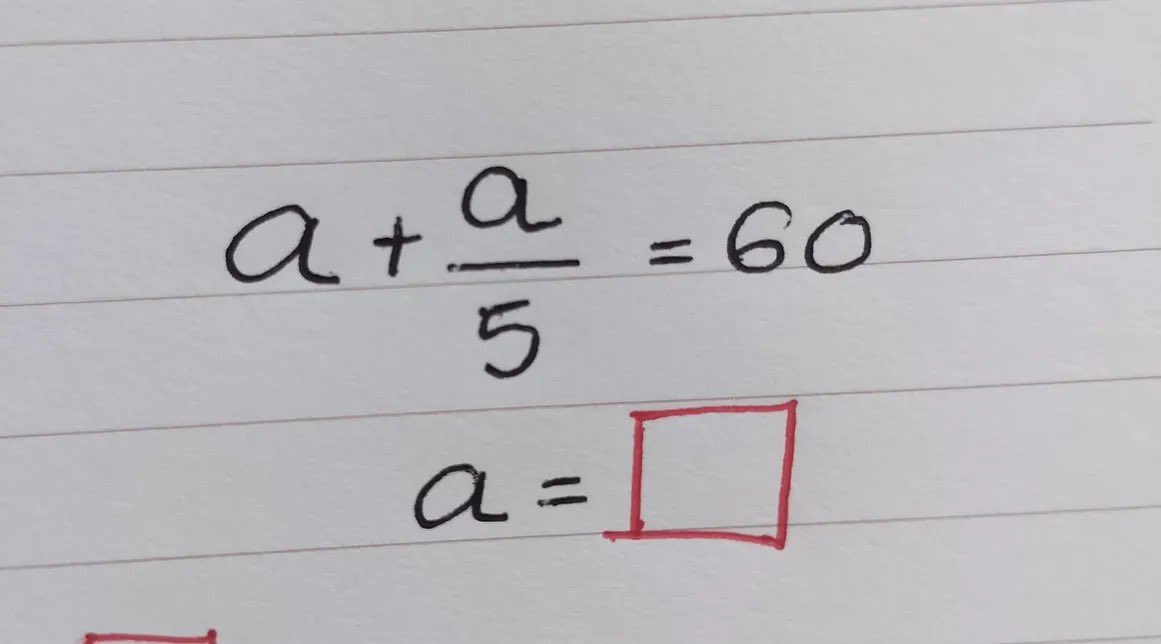 a + a/5 = 60
a =